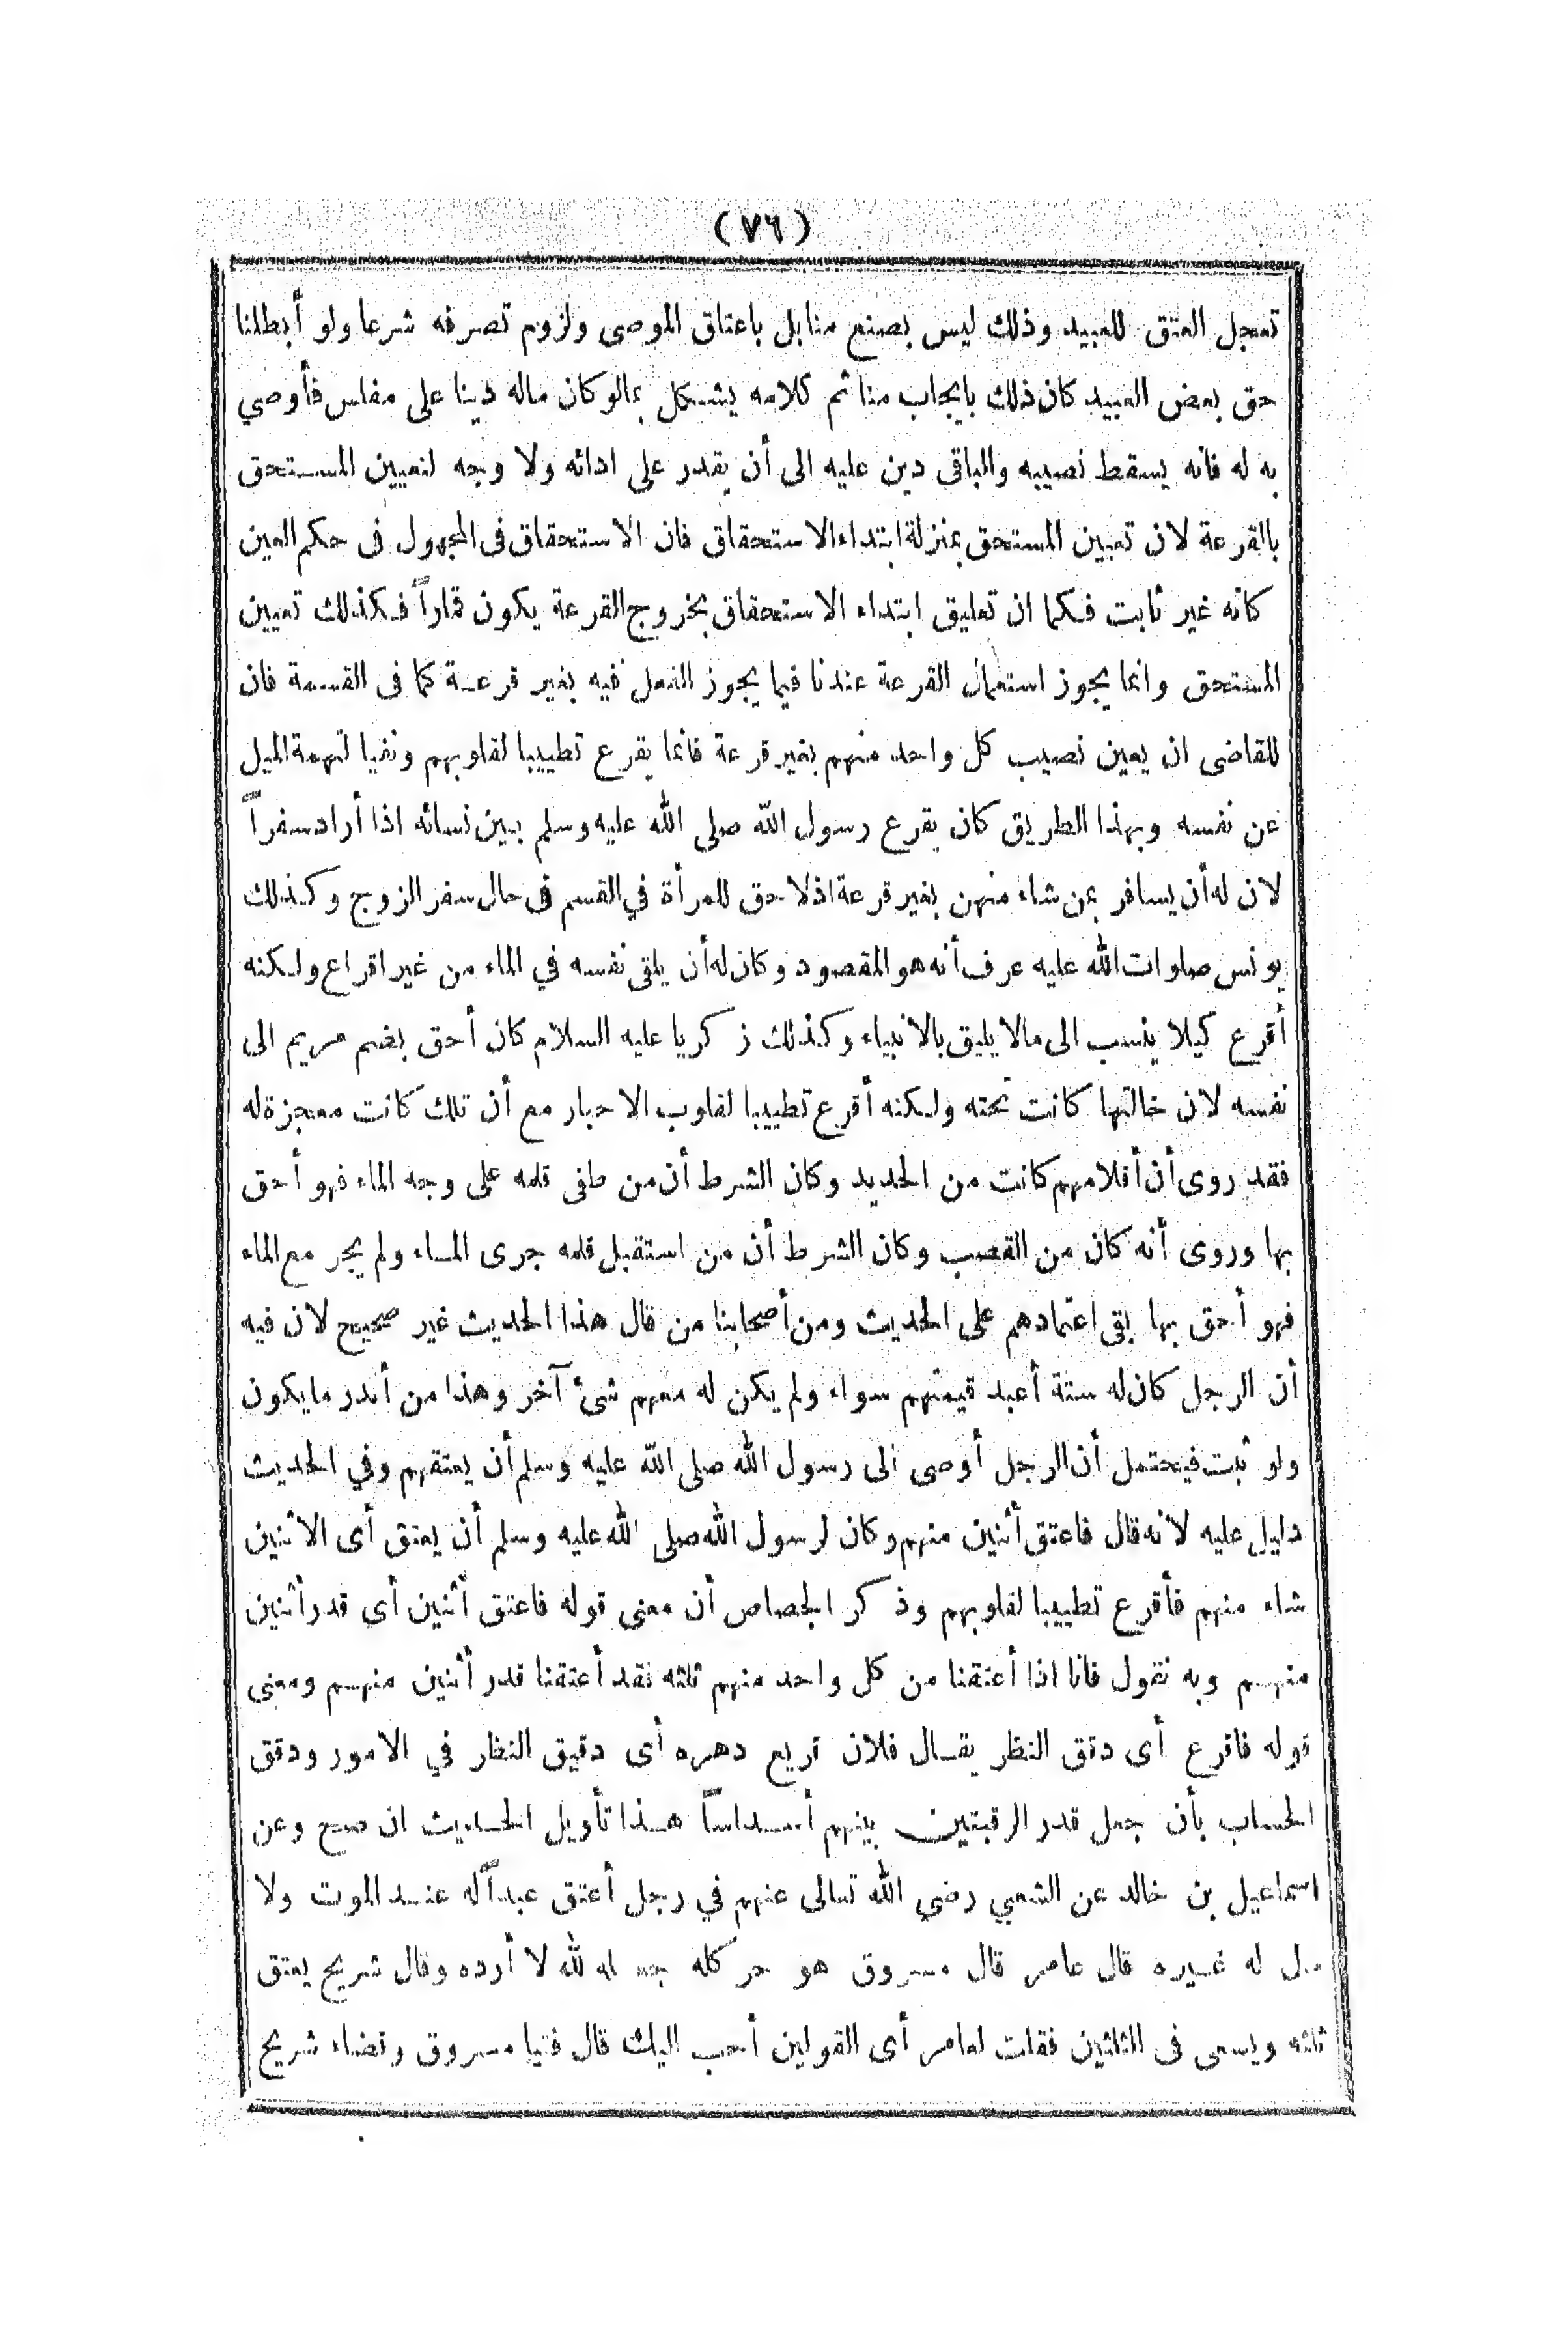 (٧٦)
تعجل العتق للعبيد وذلك ليس بصنع منا بل باعتاق الموصى ولزوم تصرفه شرعا ولو أبطلنا
حق بعض العبيد كان ذلك بايجاب منا ثم كلامه يشكل بمالو كان ماله دينا على مفلس فأوصي
به له فانه يسقط نصيبه والباقى دين عليه الى أن يقدر على ادائه ولا وجه لتعيين المستحق
بالقرعة لان تعيين المستحق بمنزلة ابتداء الاستحقاق فان الاستحقاق فى المجهول فى حكم العين
كانه غير ثابت فكما ان تعليق ابتداء الاستحقاق بخروج القرعة يكون قماراً فكذلك تعيين
المستحق وانما يجوز استعمال القرعة عندنا فيما يجوز الفعل فيه بغير قرعة كما فى القسمة فان
للقاضى ان يعين نصيب كل واحد منهم بغير قرعة فانما يقرع تطييبا لقلوبهم ونفيا لتهمة الميل
عن نفسه وبهذا الطريق كان يقرع رسول الله صلى الله عليه وسلم بين نسائه اذا أراد سفراً
لان له أن يسافر بمن شاء منهن بغير قرعة اذلا حق للمرأة في القسم فى حال سفر الزوج وكذلك
يونس صلوات الله عليه عرف أنه هو المقصود وكان له أن يلقى نفسه في الماء من غير اقراع ولكنه
أقرع كيلا ينسب الى مالا يليق بالانبياء وكذلك زكريا عليه السلام كان أحق بضم مريم الى
نفسه لان خالتها كانت تحته ولكنه أقرع تطييبا لقلوب الاحبار مع أن تلك كانت معجزة له
فقد روى أن أقلامهم كانت من الحديد وكان الشرط أن من طفى قلمه على وجه الماء فهو أحق
بها وروى أنه كان من القصب وكان الشرط أن من استقبل قلمه جرى الماء ولم يجر مع الماء
فهو أحق بها بقى اعتمادهم على الحديث ومن أصحابنا من قال هذا الحديث غير صحيح لان فيه
أن الرجل كان له ستة أعبد قيمتهم سواء ولم يكن له معهم شئ آخر وهذا من أندر ما يكون
ولو ثبت فيحتمل أن الرجل أوصى الى رسول الله صلى الله عليه وسلم أن يعتقهم وفي الحديث
دليل عليه لانه قال فاعتق أثنين منهم وكان لرسول الله صلى الله عليه وسلم أن يعتق أى الاثنين
شاء منهم فأقرع تطييبا لقلوبهم وذكر الجصاص أن معنى قوله فاعتق أثنين أى قدر أثنين
منهم وبه نقول فانا اذا أعتقنا من كل واحد منهم ثلثه فقد أعتقنا قدر أثنين منهم ومعنى
قوله فاقرع أى دقق النظر يقال فلان قريع دهره أى دقيق النظر في الامور ودقق
الحساب بأن جعل قدر الرقبتين بينهم أسداساً هذا تأويل الحديث ان صح وعن
اسماعيل بن خالد عن الشعبي رضي الله تعالى عنهم في رجل أعتق عبداً له عند الموت ولا
مال له غيره قال عامر قال مسروق هو حر كله جعله لله لا أرده وقال شريح يعتق
ثلثه ويسعى فى الثلثين فقلت لعامر أى القولين أحب اليك قال فتيا مسروق وقضاء شريح